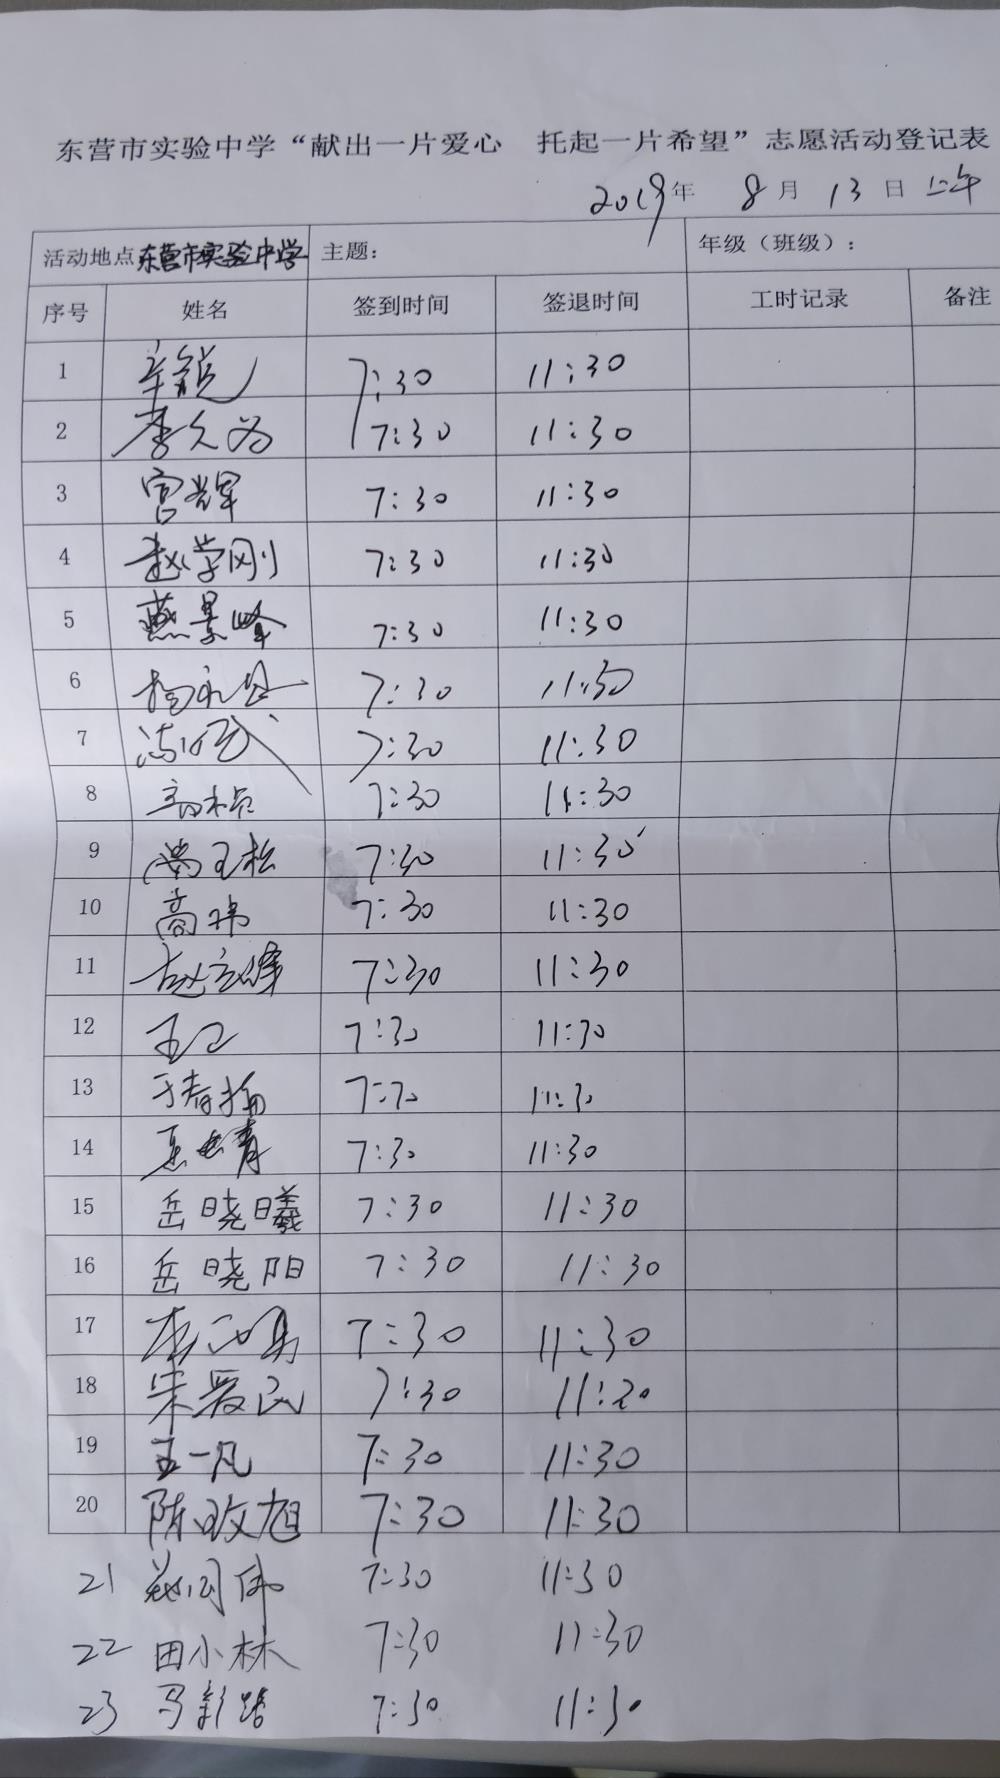 东营市实验中学“献出一片爱心 托起一片希望”志愿活动登记表
2019年 8月 13日 上午
活动地点 东营市实验中学 主题： 年级（班级）：
序号 姓名 签到时间 签退时间 工时记录 备注
1 辛锐 7:30 11:30
2 李久为 7:30 11:30
3 宫辉 7:30 11:30
4 赵学刚 7:30 11:30
5 燕景峰 7:30 11:30
6 7:30 11:30
7 7:30 11:30
8 7:30 11:30
9 玉松 7:30 11:30
10 高伟 7:30 11:30
11 赵立峰 7:30 11:30
12 王卫 7:30 11:30
13 于春梅 7:30 11:30
14 7:30 11:30
15 岳晓曦 7:30 11:30
16 岳晓阳 7:30 11:30
17 7:30 11:30
18 宋爱民 7:30 11:20
19 王一凡 7:30 11:30
20 陈政旭 7:30 11:30
21 7:30 11:30
22 田小林 7:30 11:30
23 马新 7:30 11:30